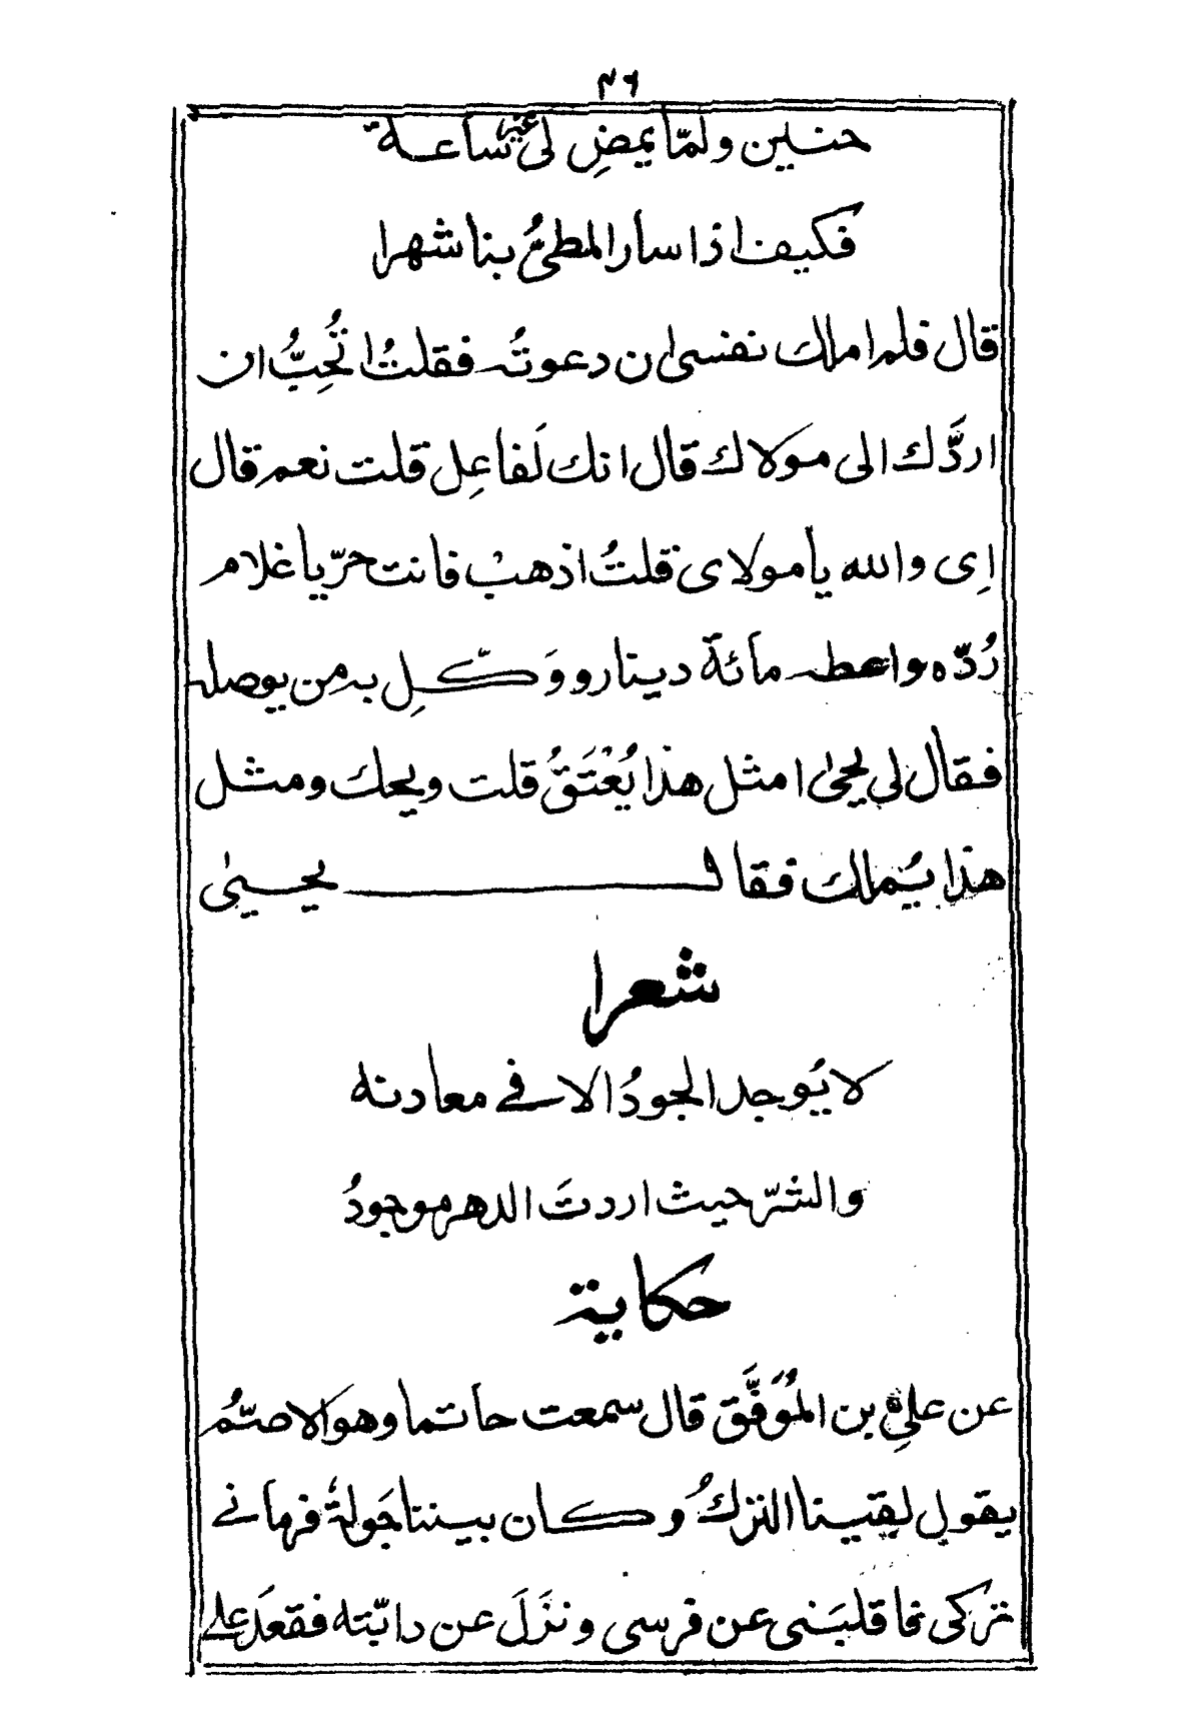 ٣٦
حنين ولمّا يمضِ لى غير ساعة
فكيف اذا سار المطىُّ بنا شهرا
قال فلم املك نفسى ان دعوتُه فقلتُ اتُحِبُّ ان
اردَّك الى مولاك قال انك لَفاعِل قلت نعم قال
اِى والله يا مولاى قلتُ اذهبْ فانت حرّ يا غلام
رُدّه واعطه مائة دينار ووَكِّل به من يوصله
فقال لى يحيىٰ امثل هذا يُعْتَقُ قلت ويحك ومثل
هذا يُملك فقال يحيىٰ
شعرا
لا يُوجد الجودُ الا فى معادنه
والشرّ حيث اردتَ الدهر موجودُ
حكاية
عن علىِّ بن المُوَفَّق قال سمعت حاتما وهو الاصمّ
يقول لقينا التركُ وكان بيننا جَولةٌ فرمانى
تركى فاقلبَنى عن فرسى ونزَلَ عن دابّته فقعدَ على